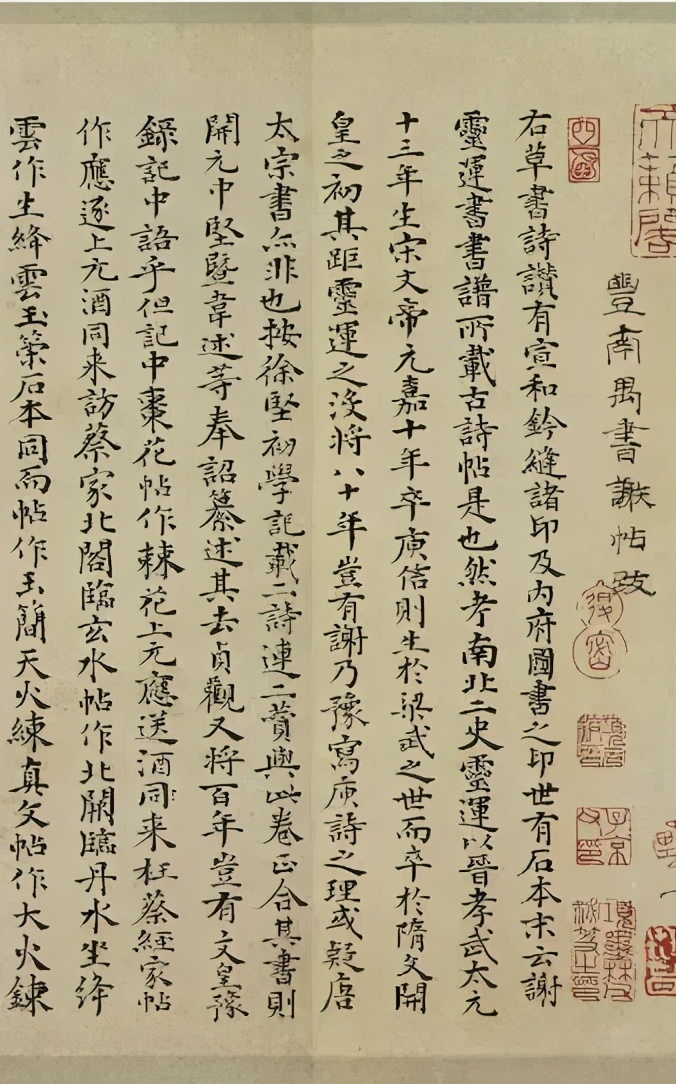 天籟閣
豐南禺書謝帖跋
子京父印
項墨林父祕笈之印
右草書詩讃有宣和鈐縫諸印及內府圖書之印世有石本末云謝
靈運書書譜所載古詩帖是也然考南北二史靈運以晉孝武太元
十三年生宋文帝元嘉十年卒庾信則生於梁武之世而卒於隋文開
皇之初其距靈運之沒將八十年豈有謝乃豫寫庾詩之理或疑唐
太宗書亦非也按徐堅初學記載二詩連二賛與此卷正合其書則
開元中堅暨韋述等奉詔纂述其去貞觀又將百年豈有文皇豫
錄記中語乎但記中棗花帖作棘花上元應送酒同来枉蔡經家帖
作應逐上元酒同来訪蔡家北閣臨玄水帖作北闕臨丹水坐絳
雲作生絳雲玉策石本同而帖作玉簡天火練真文帖作大火鍊